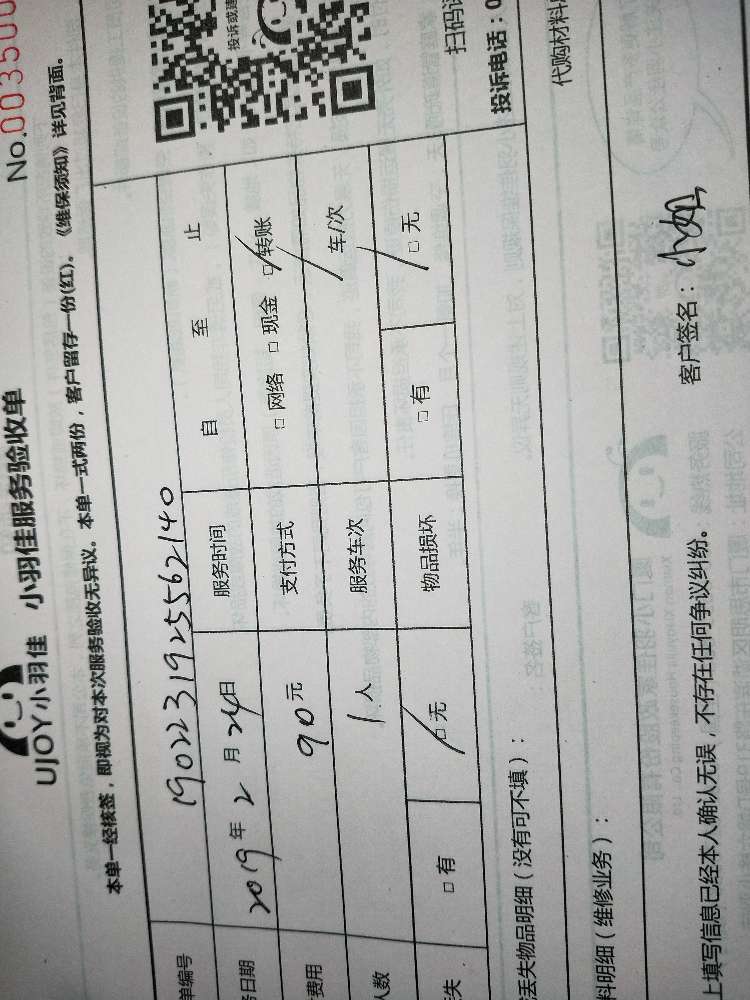 No.003500
UJOY小羽佳 小羽佳服务验收单
本单一经核签，即视为对本次服务验收无异议。本单一式两份，客户留存一份(红)。《维保须知》详见背面。
单编号 1902231925562140
日期 2019年2月24日 服务时间 自 至 止
费用 90元 支付方式 □网络 □现金 □转账
人数 1人 服务车次 车/次
失 □有 □无 物品损坏 □有 □无
投诉或建
扫码
投诉电话：0
丢失物品明细（没有可不填）：
代购材料
料明细（维修业务）：
上填写信息已经本人确认无误，不存在任何争议纠纷。 客户签名：小姐